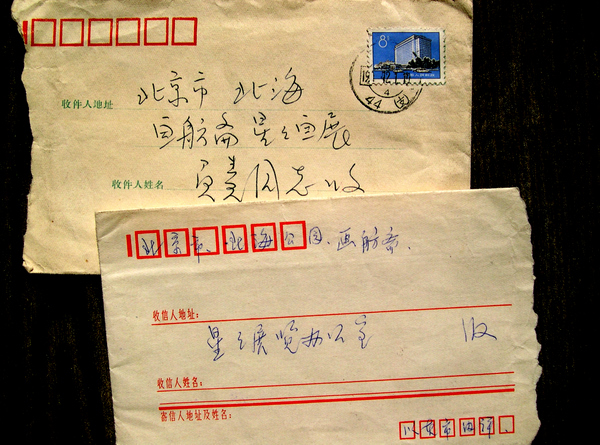 8
44 (支)
收件人地址
北京市 北海
画舫斋 星星画展
收件人姓名
负责同志收
北京市、北海公园、画舫斋、
收信人地址：
星星展览办公室 收
收信人姓名：
寄信人地址及姓名：
北京市内详